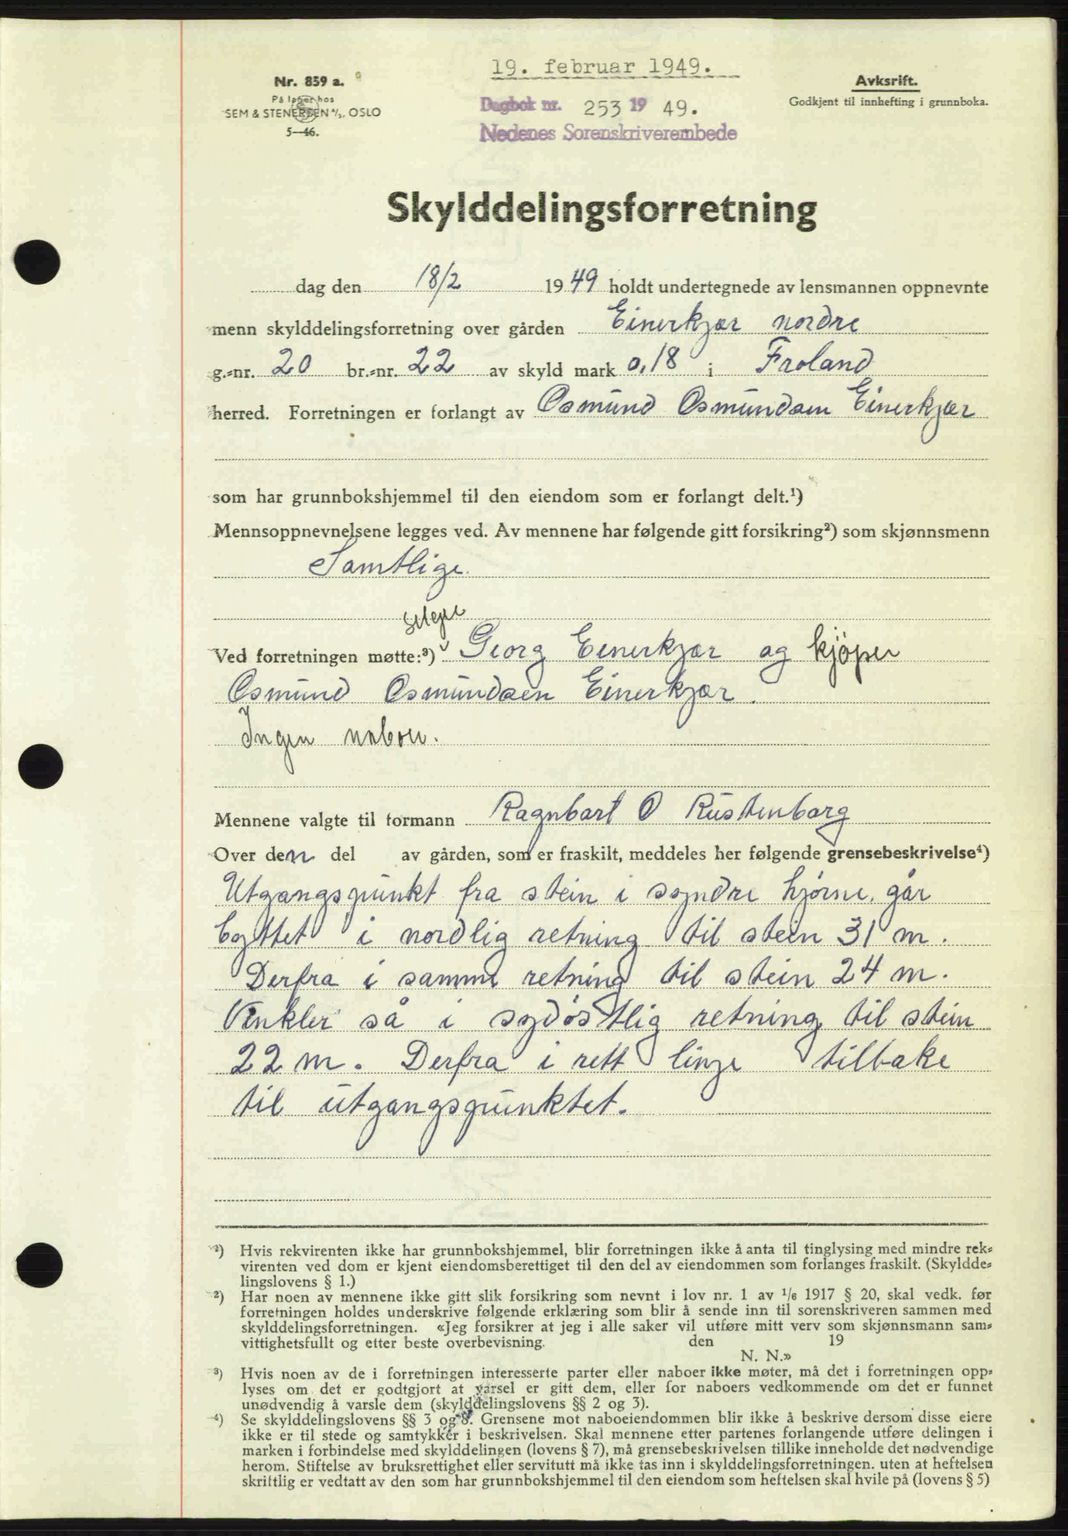 Nr. 859 a.
På lager hos
SEM & STENERSEN A/S. OSLO
5—46.
19. februar 1949.
Dagbok nr. 253 19 49.
Nedenes Sorenskriverembede
Avskrift.
Godkjent til innhefting i grunnboka.
Skylddelingsforretning
dag den 18/2 1949 holdt undertegnede av lensmannen oppnevnte
menn skylddelingsforretning over gården Einerkjær nordre
g.-nr. 20 br.-nr. 22 av skyld mark 0,18 i Froland
herred. Forretningen er forlangt av Osmund Osmundsen Einerkjær
som har grunnbokshjemmel til den eiendom som er forlangt delt.¹)
Mennsoppnevnelsene legges ved. Av mennene har følgende gitt forsikring²) som skjønnsmenn
Samtlige.
selger
Ved forretningen møtte:³) Georg Einerkjær og kjöper
Osmund Osmundsen Einerkjær.
Ingen naboer.
Mennene valgte til formann Ragnbart O Rustenborg
Over den del av gården, som er fraskilt, meddeles her følgende grensebeskrivelse⁴)
Utgangspunkt fra stein i syndre hjørne, går
byttet i nordlig retning til stein 31 m.
Derfra i samme retning til stein 24 m.
Vinkler så i sydöstlig retning til stein
22 m. Derfra i rett linje tilbake
til utgangspunktet.
¹) Hvis rekvirenten ikke har grunnbokshjemmel, blir forretningen ikke å anta til tinglysing med mindre rek-
virenten ved dom er kjent eiendomsberettiget til den del av eiendommen som forlanges fraskilt. (Skyldde-
lingslovens § 1.)
²) Har noen av mennene ikke gitt slik forsikring som nevnt i lov nr. 1 av 1/6 1917 § 20, skal vedk. før
forretningen holdes underskrive følgende erklæring som blir å sende inn til sorenskriveren sammen med
skylddelingsforretningen. «Jeg forsikrer at jeg i alle saker vil utføre mitt verv som skjønnsmann sam-
vittighetsfullt og etter beste overbevisning. den 19
N. N.»
³) Hvis noen av de i forretningen interesserte parter eller naboer ikke møter, må det i forretningen opp-
lyses om det er godtgjort at varsel er gitt dem, eller for naboers vedkommende om det er funnet
unødvendig å varsle dem (skylddelingslovens §§ 2 og 3).
⁴) Se skylddelingslovens §§ 3 og 8. Grensene mot naboeiendommen blir ikke å beskrive dersom disse eiere
ikke er til stede og samtykker i beskrivelsen. Skal mennene etter partenes forlangende utføre delingen i
marken i forbindelse med skylddelingen (lovens § 7), må grensebeskrivelsen tillike inneholde det nødvendige
herom. Stiftelse av bruksrettighet eller servitutt må ikke tas inn i skylddelingsforretningen. uten at heftelsen
skriftlig er vedtatt av den som har grunnbokshjemmel til den eiendom som heftelsen skal hvile på (lovens § 5)